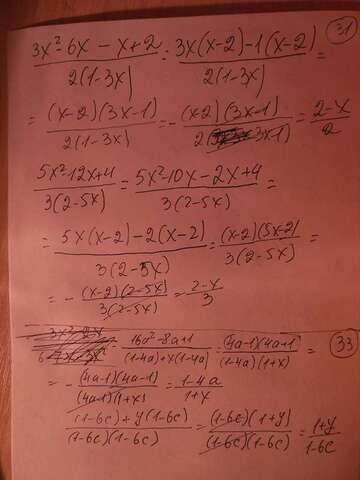 (3x²-6x-x+2)/(2(1-3x)) = (3x(x-2)-1(x-2))/(2(1-3x)) = 31
= ((x-2)(3x-1))/(2(1-3x)) = -((x-2)(3x-1))/(2(3x-1)) = (2-x)/2
(5x²-12x+4)/(3(2-5x)) = (5x²-10x-2x+4)/(3(2-5x)) =
= (5x(x-2)-2(x-2))/(3(2-5x)) = ((x-2)(5x-2))/(3(2-5x)) =
= -((x-2)(2-5x))/(3(2-5x)) = (2-x)/3
(16a²-8a+1)/((1-4a)+x(1-4a)) = ((4a-1)(4a-1))/((1-4a)(1+x)) = 33
= -((4a-1)(4a-1))/((4a-1)(1+x)) = (1-4a)/(1+x)
((1-6c)+y(1-6c))/((1-6c)(1-6c)) = ((1-6c)(1+y))/((1-6c)(1-6c)) = (1+y)/(1-6c)